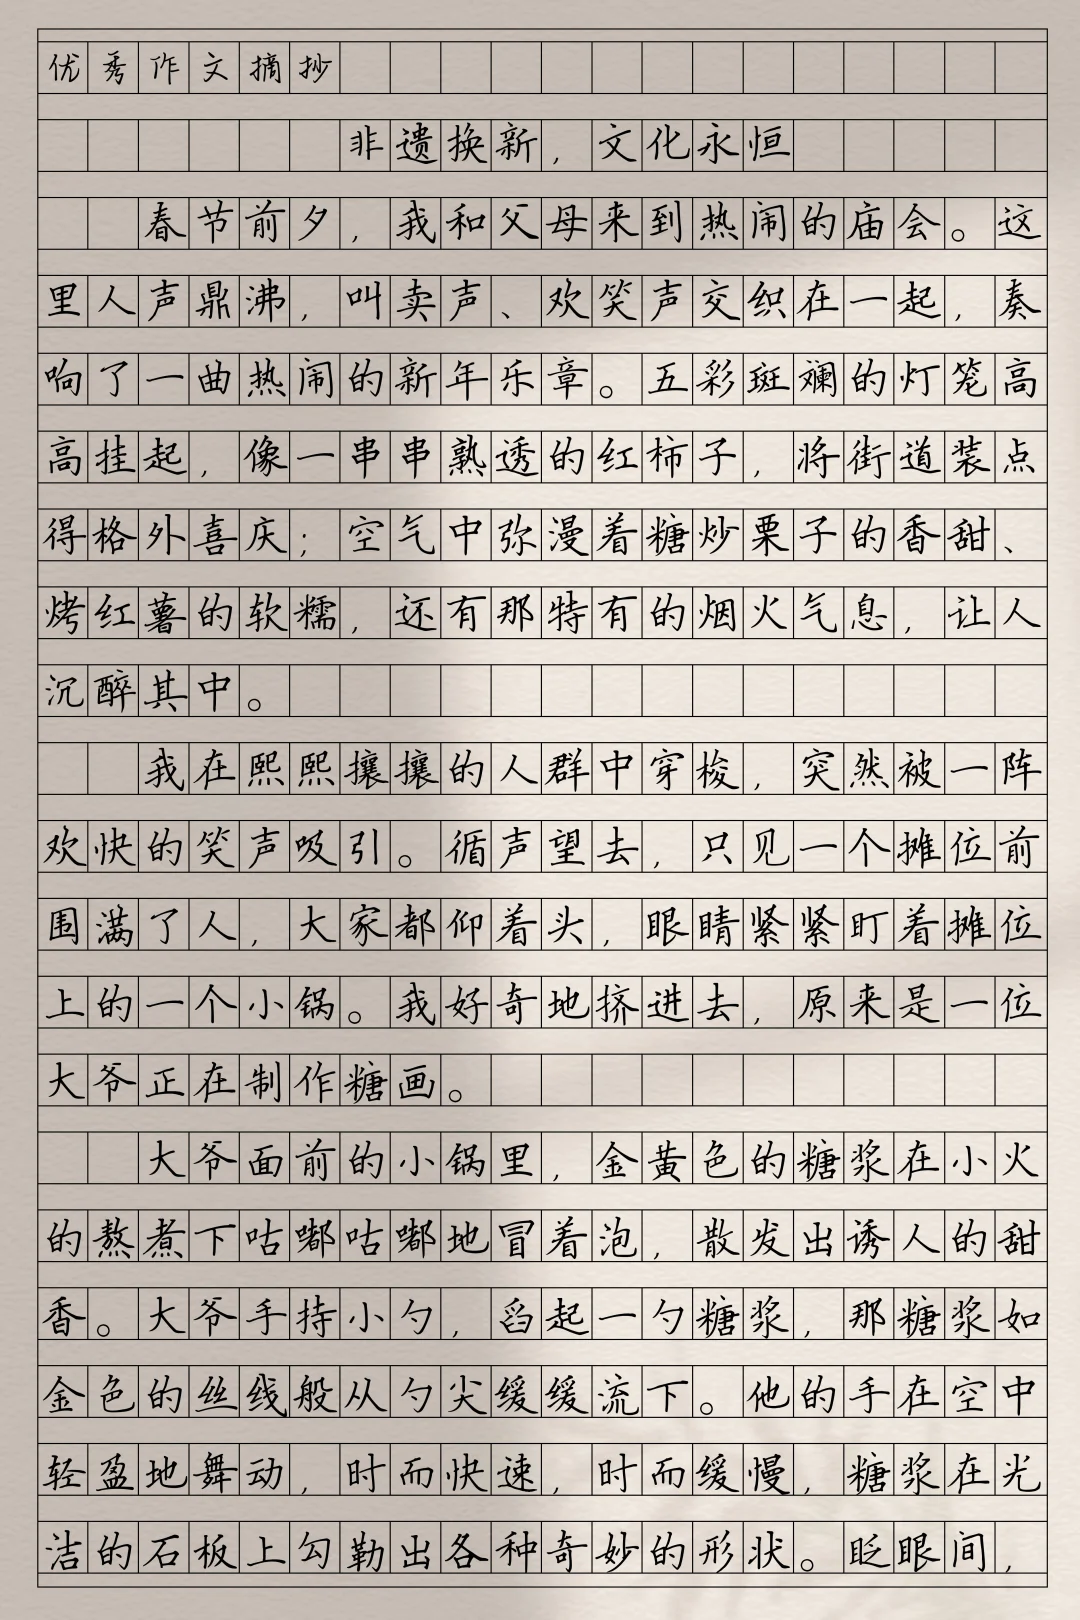 优秀作文摘抄
非遗换新，文化永恒
春节前夕，我和父母来到热闹的庙会。这
里人声鼎沸，叫卖声、欢笑声交织在一起，奏
响了一曲热闹的新年乐章。五彩斑斓的灯笼高
高挂起，像一串串熟透的红柿子，将街道装点
得格外喜庆；空气中弥漫着糖炒栗子的香甜、
烤红薯的软糯，还有那特有的烟火气息，让人
沉醉其中。
我在熙熙攘攘的人群中穿梭，突然被一阵
欢快的笑声吸引。循声望去，只见一个摊位前
围满了人，大家都仰着头，眼睛紧紧盯着摊位
上的一个小锅。我好奇地挤进去，原来是一位
大爷正在制作糖画。
大爷面前的小锅里，金黄色的糖浆在小火
的熬煮下咕嘟咕嘟地冒着泡，散发出诱人的甜
香。大爷手持小勺，舀起一勺糖浆，那糖浆如
金色的丝线般从勺尖缓缓流下。他的手在空中
轻盈地舞动，时而快速，时而缓慢，糖浆在光
洁的石板上勾勒出各种奇妙的形状。眨眼间，